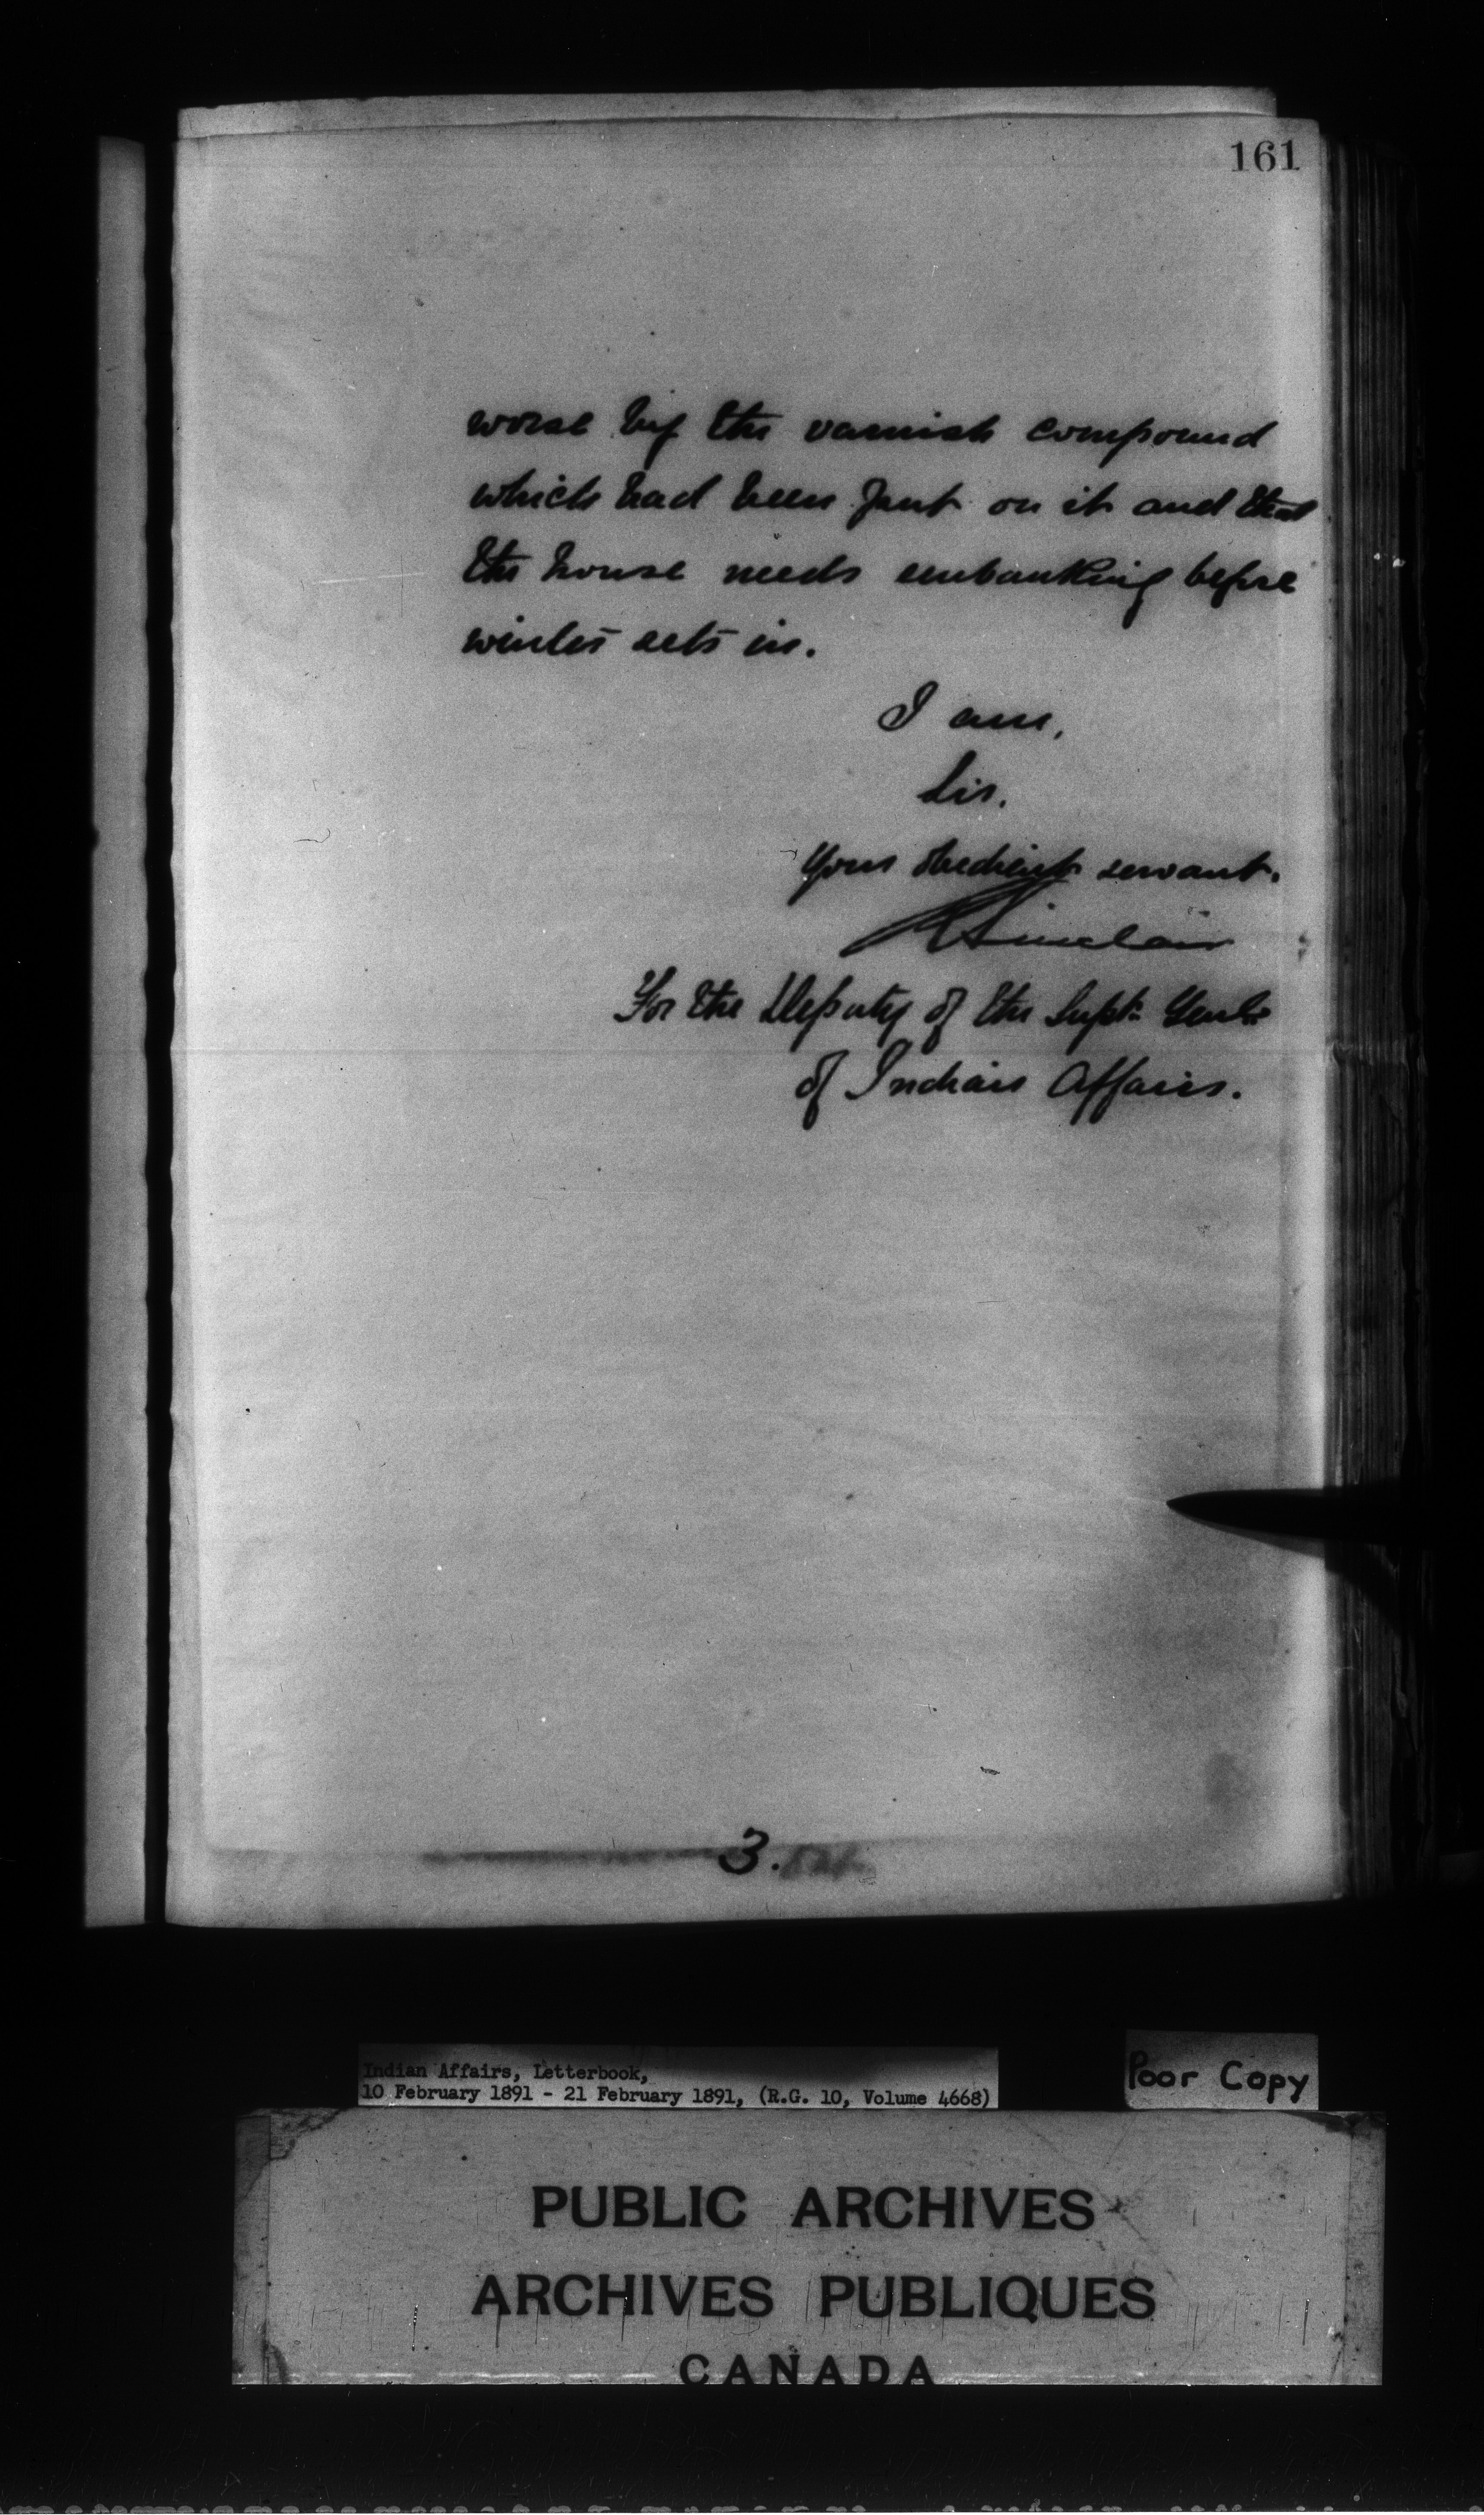 161
worse by the varnish compound
which had been put on it and that
the house needs embanking before
winter sets in.
I am,
Sir,
Your obedient servant.
Sinclair
For the Deputy of the Supt. Genl.
of Indian Affairs.
3.
Indian Affairs, Letterbook,
10 February 1891 - 21 February 1891, (R.G. 10, Volume 4668)
Poor Copy
PUBLIC ARCHIVES
ARCHIVES PUBLIQUES
CANADA